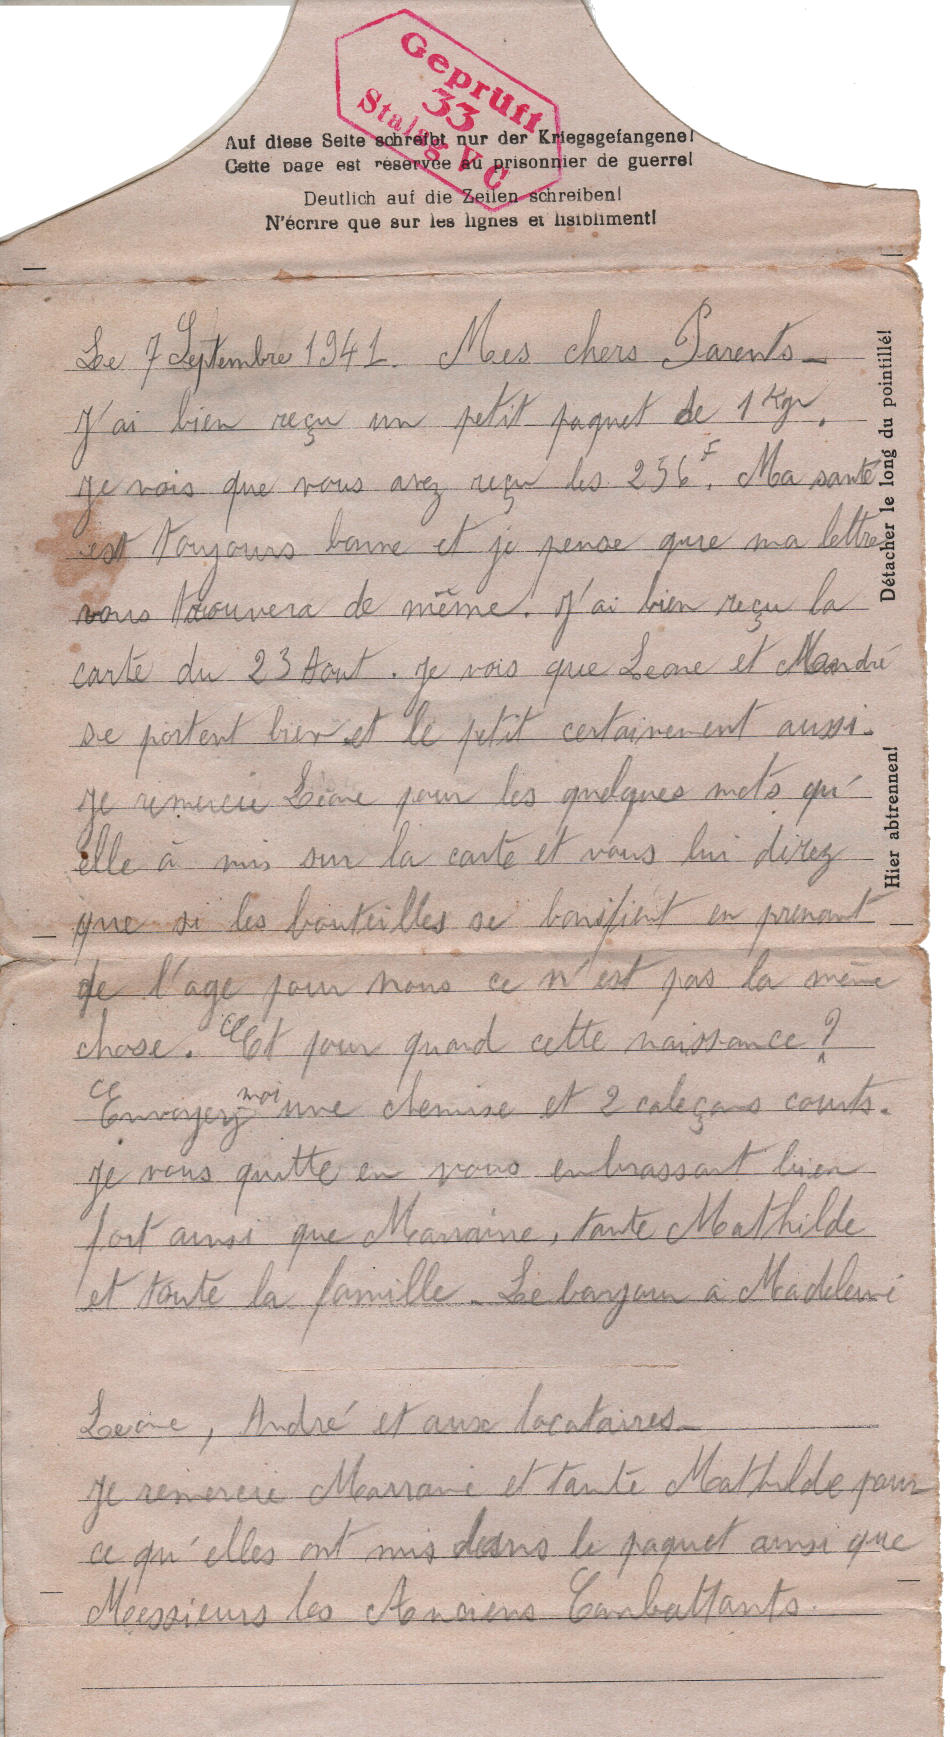 Geprüft
33
Stalag V C
Auf diese Seite schreibt nur der Kriegsgefangene!
Cette page est réservée au prisonnier de guerre!
Deutlich auf die Zeilen schreiben!
N'écrire que sur les lignes et lisiblement!
Le 7 Septembre 1941. Mes chers Parents_
J'ai bien reçu un petit paquet de 1 Kgr.
Je vois que vous avez reçu les 256F. Ma santé
est toujours bonne et je pense que ma lettre
vous trouvera de même. J'ai bien reçu la
carte du 23 Aout. Je vois que Leone et André
se portent bien et le petit certainement aussi.
Je remercie Léone pour les quelques mots qu'
elle à mis sur la carte et vous lui direz
que si les bouteilles se bonifient en prenant
de l'age pour nous ce n'est pas la même
chose. Et pour quand cette naissance ?
Envoyez moi une chemise et 2 caleçons courts.
Je vous quitte en vous embrassant bien
fort ainsi que Marraine, tante Mathilde
et toute la famille_ Le bonjour à Madeleine
Leone, André et aux locataires_
Je remercie Marraine et tante Mathilde pour
ce qu'elles ont mis dans le paquet ainsi que
Messieurs les Anciens Combattants.
Détacher le long du pointillé!
Hier abtrennen!